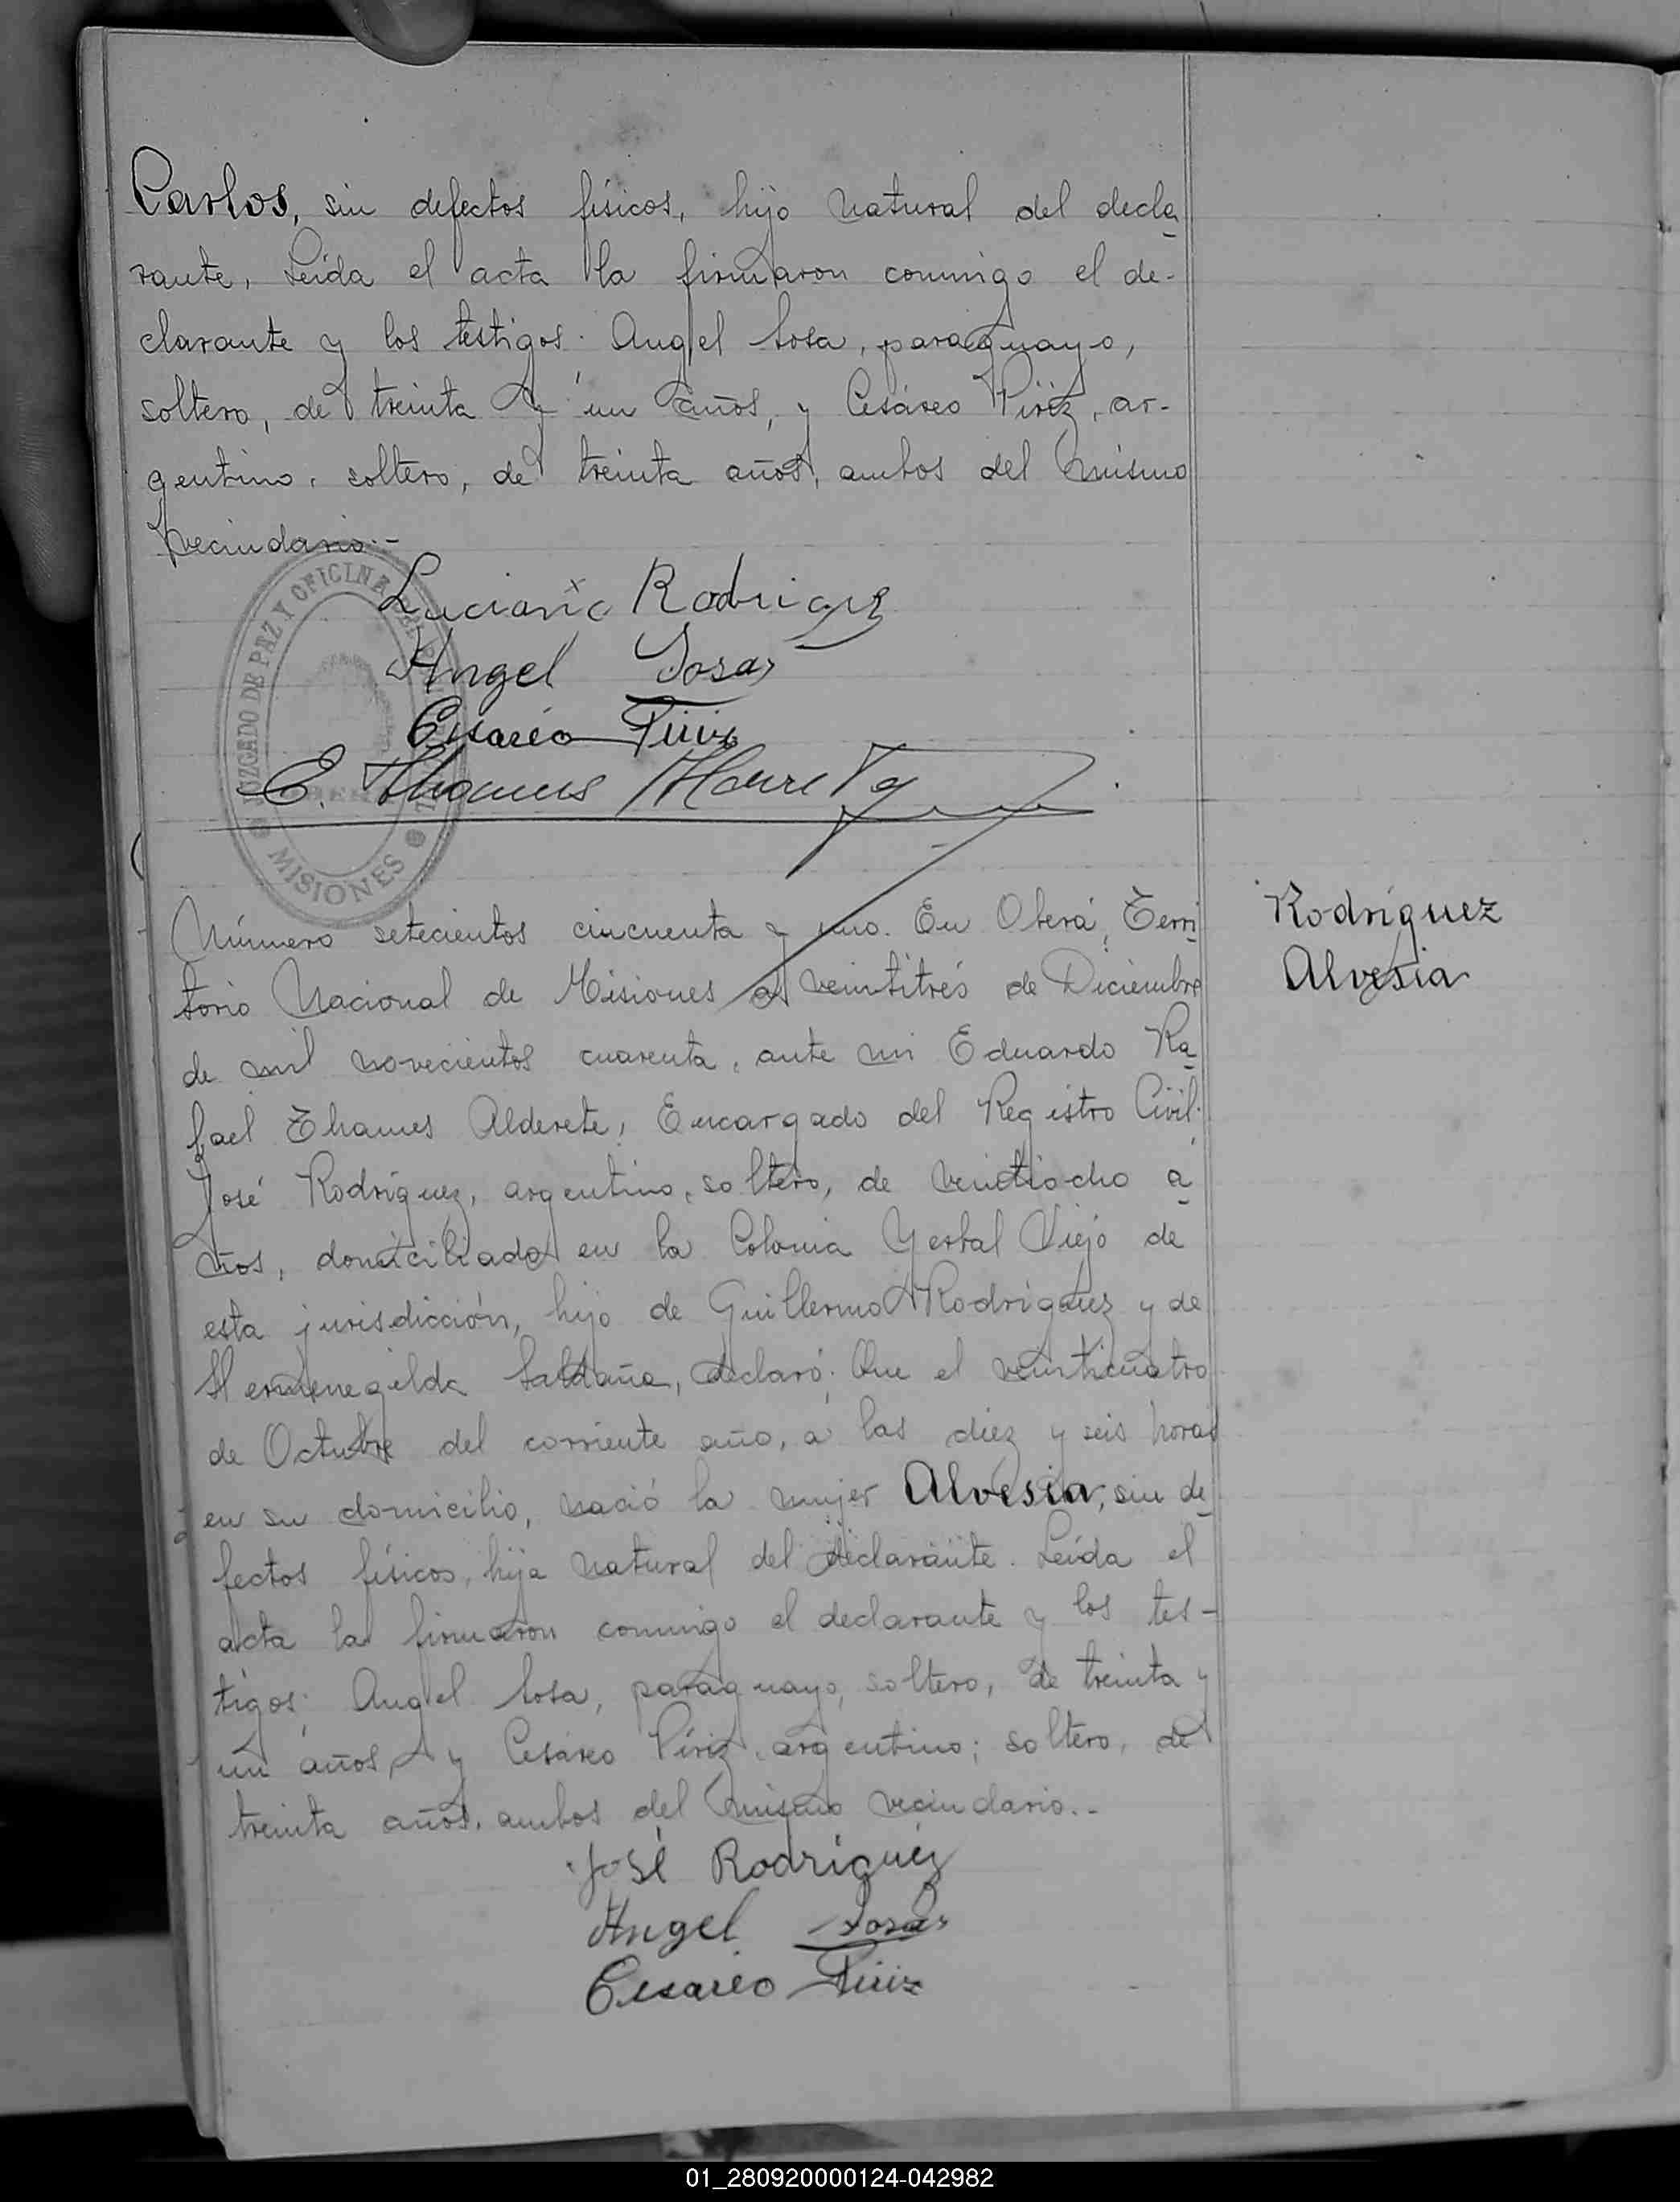 Carlos, sin defectos físicos, hijo natural del decla
rante. Leída el acta la firmaron conmigo el de-
clarante y los testigos: Angel Sosa, paraguayo,
soltero, de treinta y un años, y Cesáreo Píriz, ar-
gentino, soltero, de treinta años, ambos del mismo
vecindario.-
JUZGADO DE PAZ Y OFICINA
MISIONES
Luciano Rodriguez
Angel Sosa
Cesareo Piriz
E. Thames Alderete
Número setecientos cincuenta y uno. En Oberá, Terri
torio Nacional de Misiones a veintitrés de Diciembre
de mil novecientos cuarenta, ante mi Eduardo Ra
fael Thames Alderete, Encargado del Registro Civil.
José Rodríguez, argentino, soltero, de veintiocho a
ños, domiciliado en la Colonia Yerbal Viejo de
esta jurisdicción, hijo de Guillermo Rodríguez y de
Hermenegilda Saldaña, declaró: Que el veinticuatro
de Octubre del corriente año, a las diez y seis horas
en su domicilio, nació la mujer Alvesia, sin de
fectos físicos, hija natural del declarante. Leída el
acta la firmaron conmigo el declarante y los tes-
tigos: Angel Sosa, paraguayo, soltero, de treinta y
un años, y Cesáreo Píriz, argentino; soltero, de
treinta años, ambos del mismo vecindario.-
José Rodríguez
Angel Sosa
Cesareo Piriz
Rodríguez
Alvesia
01_280920000124-042982